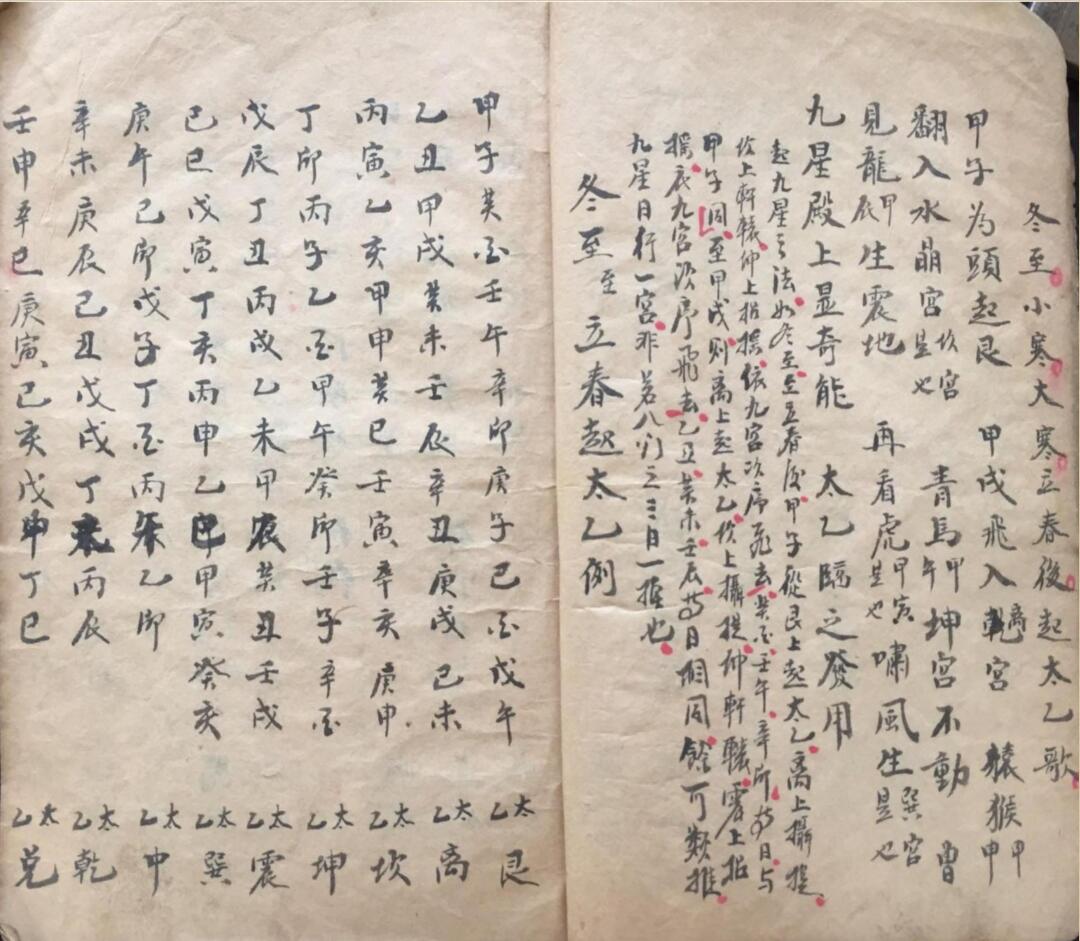 冬至小寒大寒立春後起太乙歌
甲子为頭起艮 甲戌飛入乾離宮 猿猴甲申
翻入水晶宮坎宮是也 青馬甲午坤宮不動 曾
見龍甲辰生震地 再看虎甲寅是也嘯風生巽宮是也
九星殿上显奇能 太乙臨之發用
起九星之法如冬至至立春后甲子從艮上起太乙离上攝提
坎上軒轅坤上招搖依九宮次序飛去癸酉壬午辛卯等日与
甲子同至甲戌则离上起太乙坎上攝提坤軒轅震上招
搖依九宮次序飛去乙丑癸未壬辰等日相同餘可類推
九星日行一宮非若八门之三日一推也
冬至至立春起太乙例
甲子癸酉壬午辛卯庚子己酉戊午 太乙艮
乙丑甲戌癸未壬辰辛丑庚戌己未 太乙离
丙寅乙亥甲申癸巳壬寅辛亥庚申 太乙坎
丁卯丙子乙酉甲午癸卯壬子辛酉 太乙坤
戊辰丁丑丙戌乙未甲辰癸丑壬戌 太乙震
己巳戊寅丁亥丙申乙巳甲寅癸亥 太乙巽
庚午己卯戊子丁酉丙午乙卯 太乙中
辛未庚辰己丑戊戌丁未丙辰 太乙乾
壬申辛巳庚寅己亥戊申丁巳 太乙兑